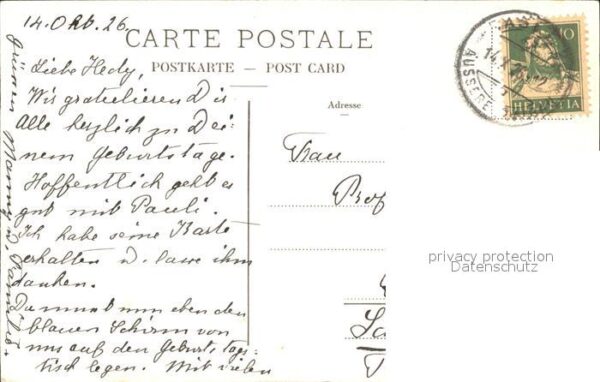 14. Okt. 26.
CARTE POSTALE
POSTKARTE — POST CARD
Liebe Hedy,
Wir gratulieren Dir
Alle herzlich zu Dei-
nem Geburtstage.
Hoffentlich geht es
gut mit Pauli.
Ich habe seine Karte
erhalten u. lasse ihm
danken.
Du musst nun eben den
blauen Schirm von
uns auf den Geburtstags-
tisch legen. Mit vielen
Grüssen
Adresse
Frau
Prof
10
HELVETIA
AUSSERE
privacy protection
Datenschutz